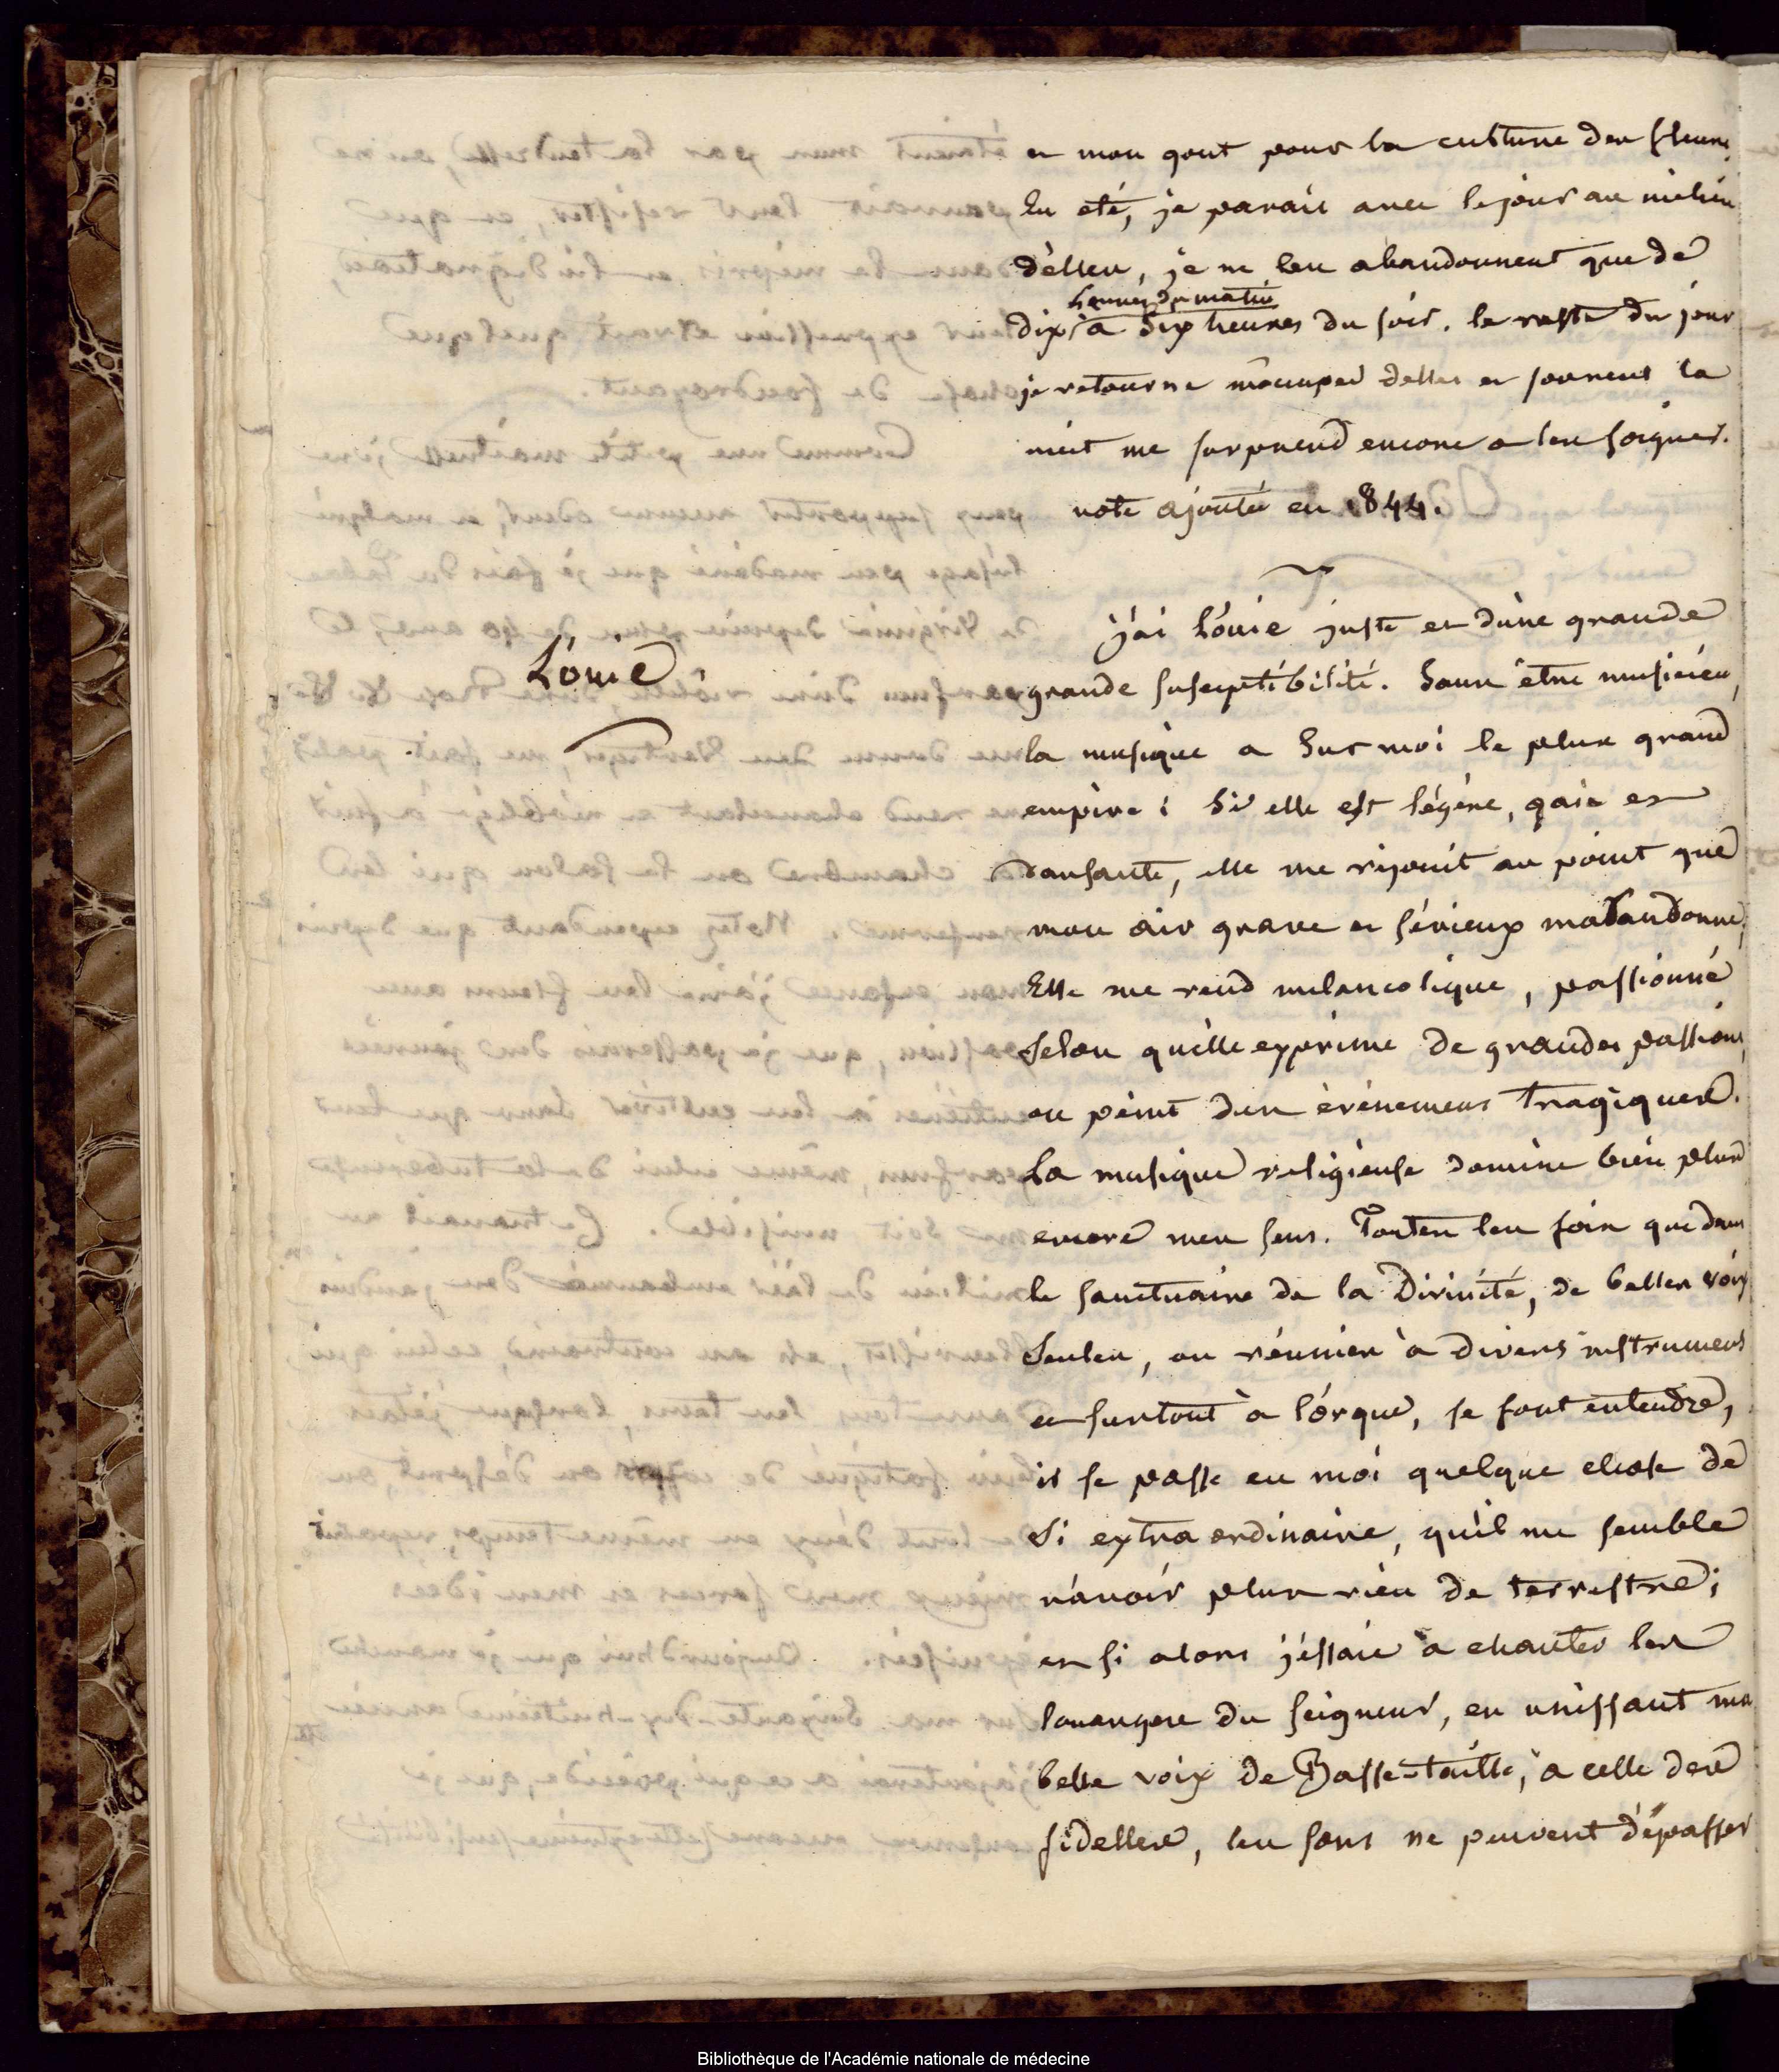 et mon gout pour la culture des fleurs.
En eté, je parais avec le jour au milieu
d'elles, je ne les abandonnent que de
heures du matin
dix à six heures du soir. le reste du jour
je retourne m'occuper d'elles et souvent la
nuit me surprend encore a les soigner.
note ajoutée en 1844.
L'ouie
j'ai l'ouie juste et d'une grande
grande susceptibilité. Sans être musicien,
la musique a sur moi le plus grand
empire : Si elle est légère, gaie et
dansante, elle me rejouit au point que
mon air grave et sérieux m'abandonne;
Elle me rend melancolique, passionné
selon qu'elle exprime de grandes passions,
ou peint des évènemens tragiques.
La musique religieuse domine bien plus
encore mes sens. Toutes les fois que dans
le sanctuaire de la Divinité, de belles voix
seules, ou réunies à divers instrumens
et surtout à l'orgue, se font entendre,
il se passe en moi quelque chose de
si extra ordinaire, qu'il me semble
n'avoir plus rien de terrestre;
et si alors j'essaie à chanter les
louanges du seigneur, en unissant ma
belle voix de Basse-taille, à celle des
fidelles, les sons ne peuvent dépasser
Bibliothèque de l'Académie nationale de médecine